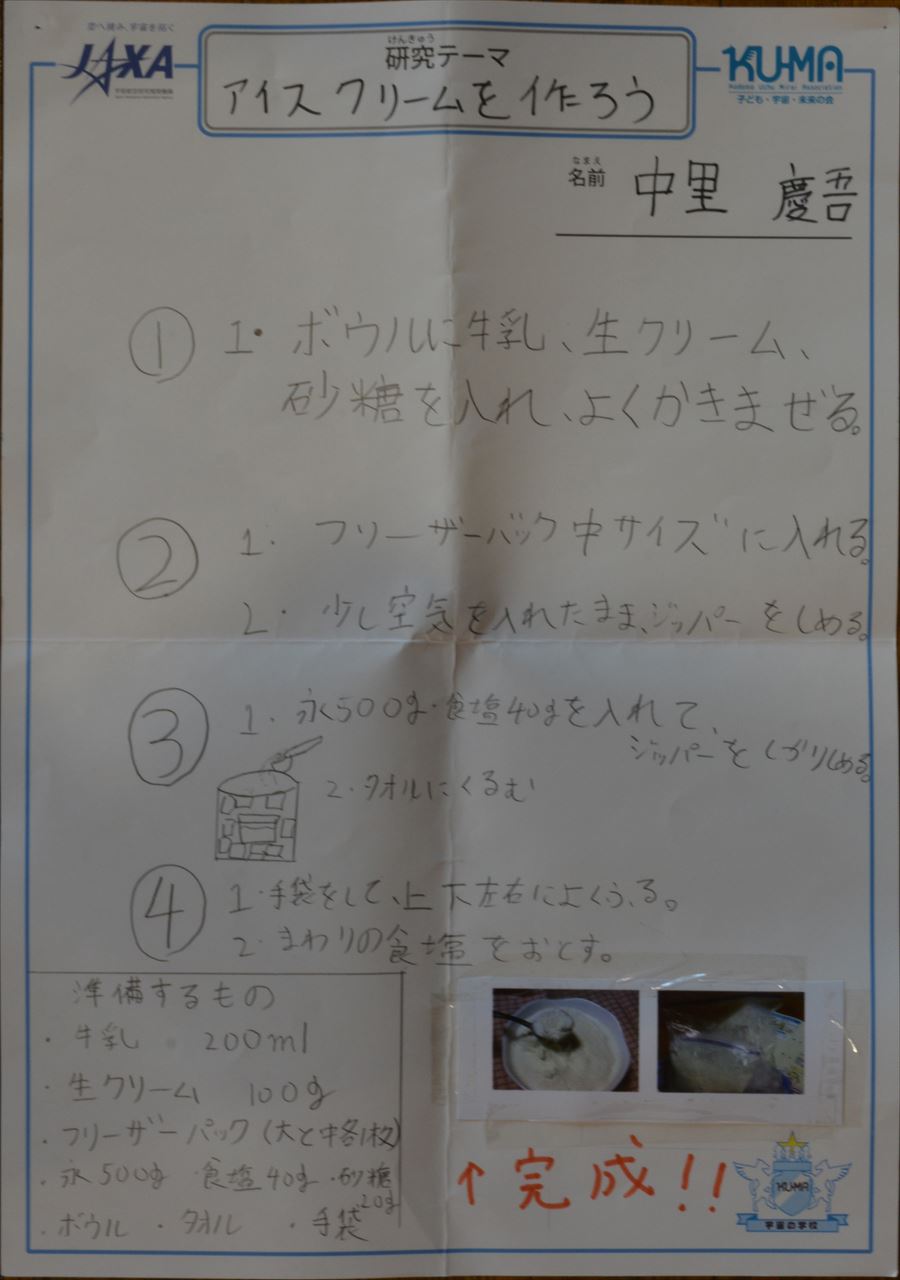 空へ挑み、宇宙を拓く
JAXA
けんきゅう
研究テーマ
アイスクリームを作ろう
KU-MA
Kodomo Uchu Mirai Association
子ども・宇宙・未来の会
なまえ
名前 中里 慶吾
① 1・ボウルに牛乳、生クリーム、
砂糖を入れ、よくかきまぜる。
② 1・フリーザーバック中サイズに入れる。
2・少し空気を入れたまま、ジッパーをしめる。
③ 1・氷500g・食塩40gを入れて、
ジッパーをしっかりしめる。
2・タオルにくるむ
④ 1・手袋をして、上下左右によくふる。
2・まわりの食塩をおとす。
準備するもの
・牛乳 200ml
・生クリーム 100g
・フリーザーパック(大と中各1枚)
・氷500g 食塩40g ・砂糖20g
・ボウル ・タオル ・手袋
↑完成!!
KU-MA
宇宙の学校